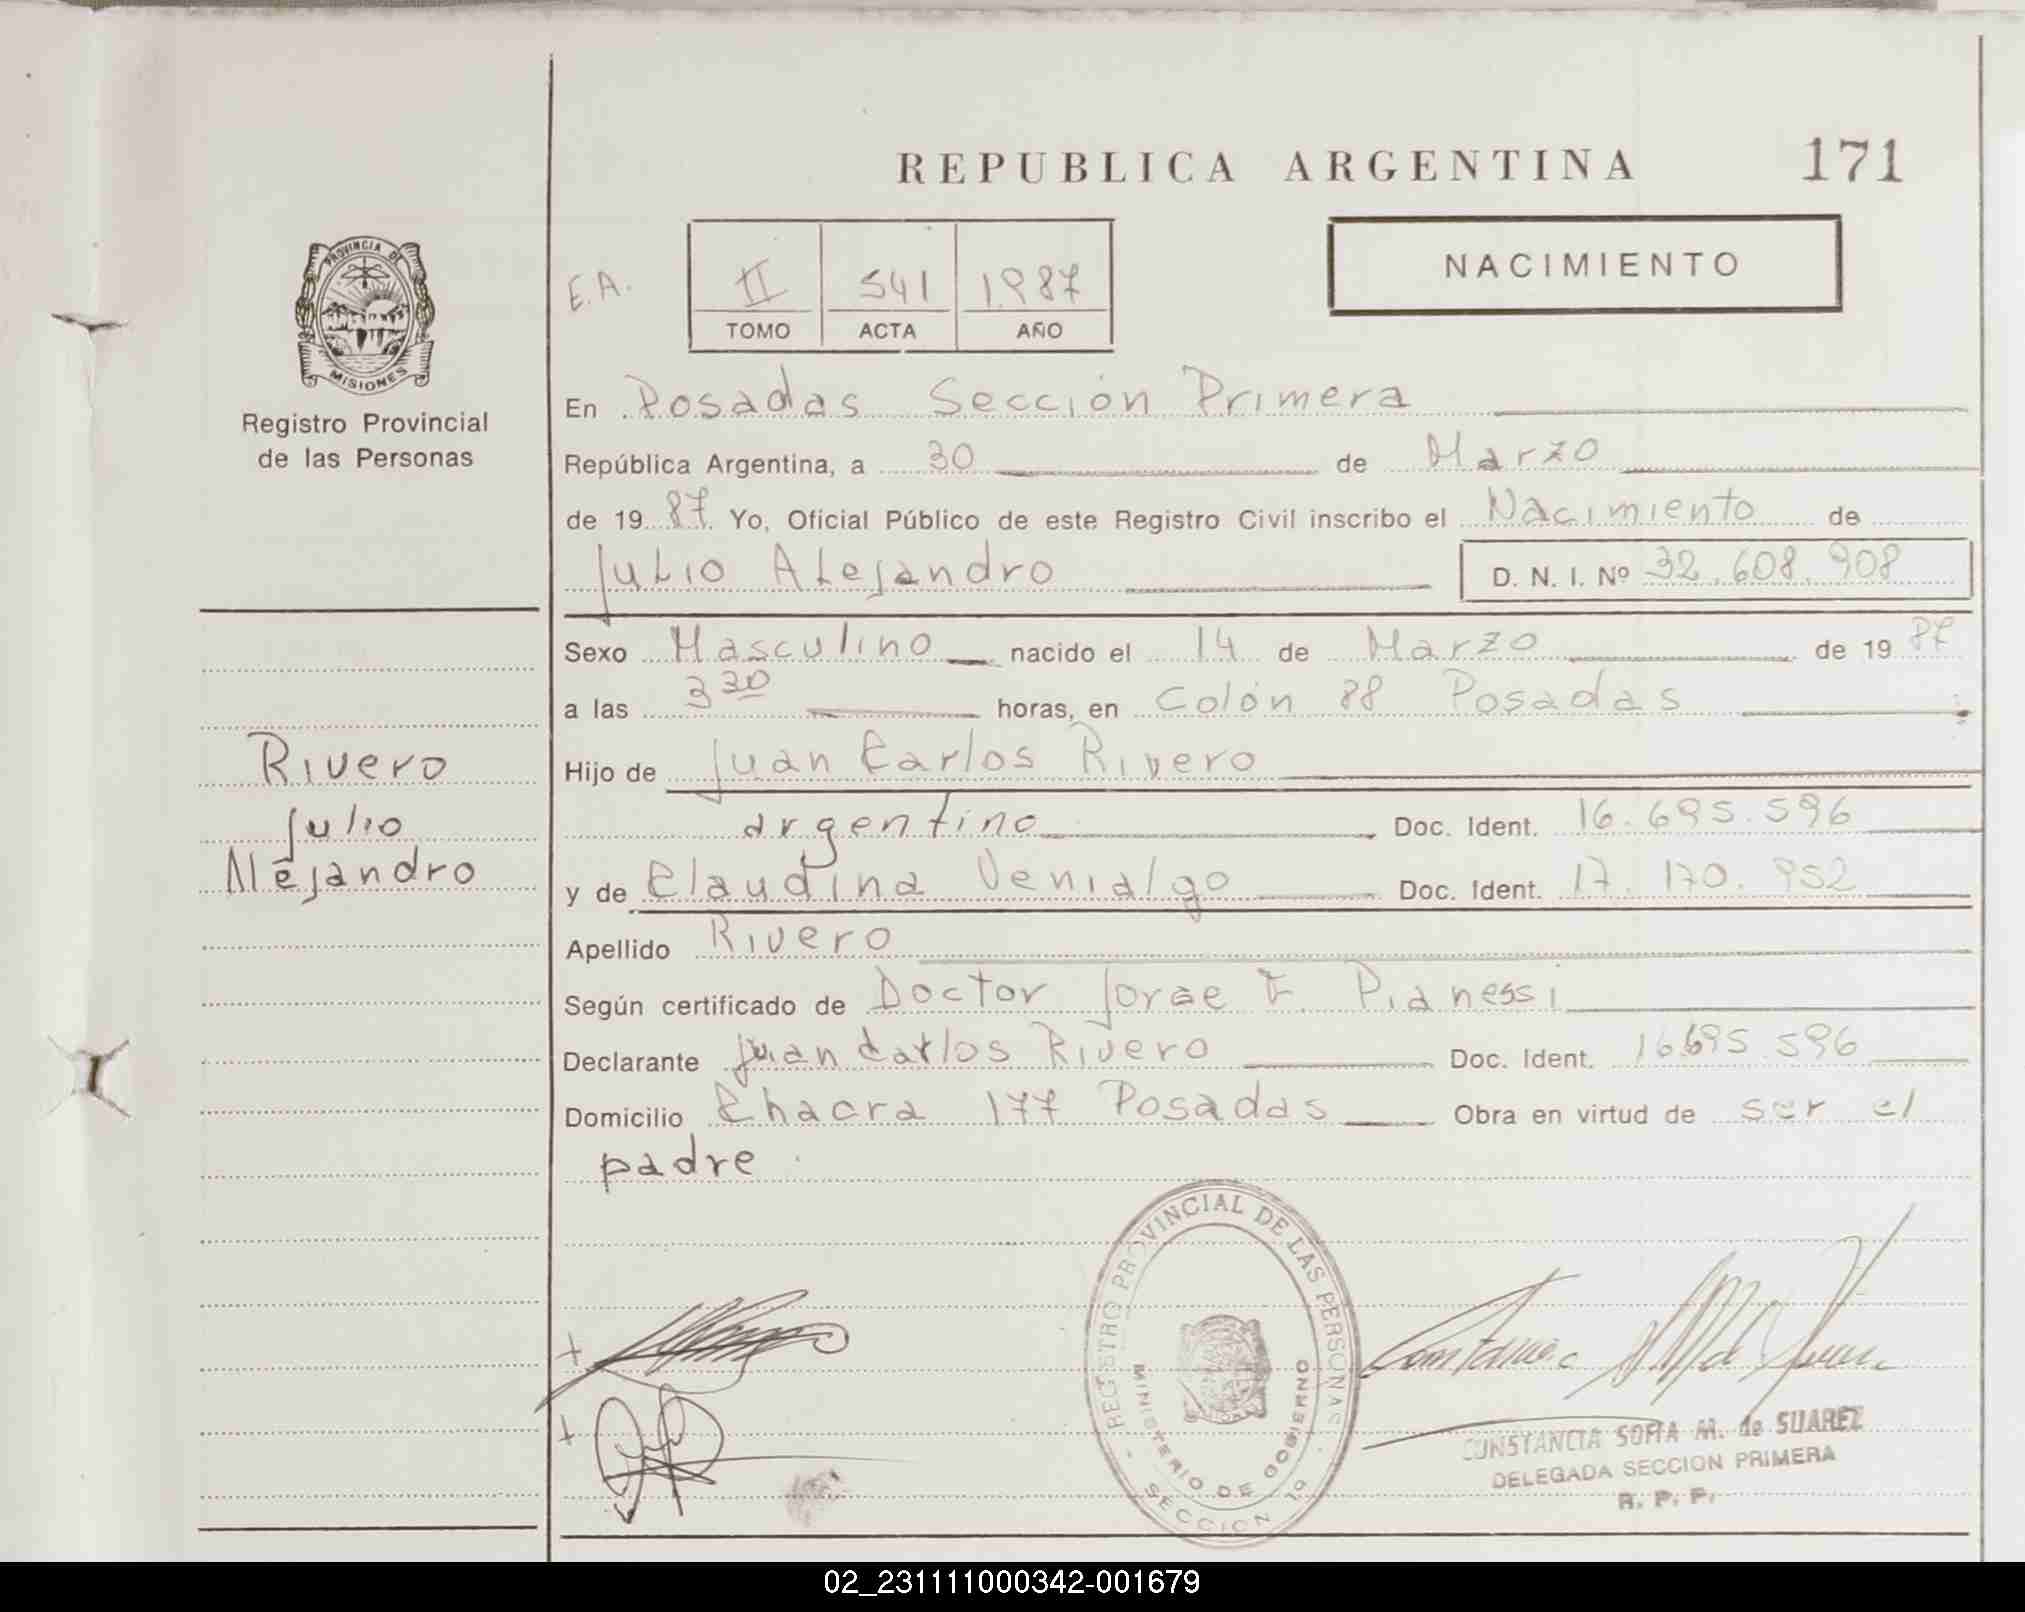 REPUBLICA ARGENTINA 171
PROVINCIA DE
MISIONES
Registro Provincial
de las Personas
E.A. II 541 1987
TOMO ACTA AÑO
NACIMIENTO
En Posadas Sección Primera
República Argentina, a 30 de Marzo
de 19 87 Yo, Oficial Público de este Registro Civil inscribo el Nacimiento de
Julio Alejandro D. N. I. Nº 32.608.908
Sexo Masculino nacido el 14 de Marzo de 19 87
a las 3 30 horas, en Colón 88 Posadas
Rivero
Julio
Alejandro
Hijo de Juan Carlos Rivero
argentino Doc. Ident. 16.695.596
y de Claudina Venialgo Doc. Ident. 17.170.952
Apellido Rivero
Según certificado de Doctor Jorge F. Pianessi
Declarante Juan Carlos Rivero Doc. Ident. 16.695.596
Domicilio Chacra 177 Posadas Obra en virtud de ser el
padre.
REGISTRO PROVINCIAL DE LAS PERSONAS
MINISTERIO DE GOBIERNO
SECCION 1º
CONSTANCIA SOFIA M. de SUAREZ
DELEGADA SECCION PRIMERA
R. P. P.
02_231111000342-001679